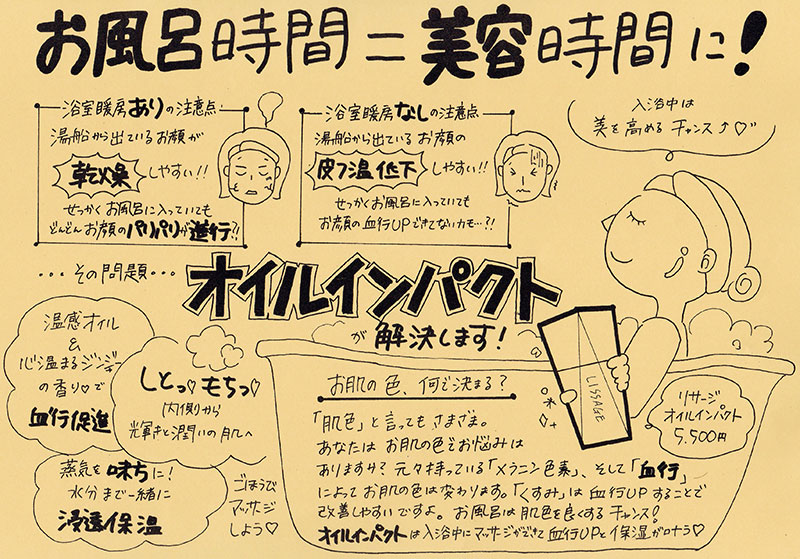 お風呂時間＝美容時間に！
浴室暖房ありの注意点
湯船から出ているお顔が
乾燥しやすい!!
せっかくお風呂に入っていても
どんどんお顔のパリパリが進行?!
浴室暖房なしの注意点
湯船から出ているお顔の
皮フ温低下しやすい!!
せっかくお風呂に入っていても
お顔の血行UPできてないカモ…?!
入浴中は
美を高めるチャンス↑♡"
…その問題…
オイルインパクト
が解決します！
温感オイル
&
心温まるジンジャー
の香り♡で
血行促進
しとっ♡もちっ♡
内側から
輝きと潤いの肌へ
蒸気を味ちに！
水分まで一緒に
浸透保温
ごほうび
マッサージ
しよう♡
お肌の色、何で決まる？
「肌色」と言ってもさまざま。
あなたはお肌の色をお悩みは
ありますか？元々持っている「メラニン色素」、そして「血行」
によってお肌の色は変わります。「くすみ」は血行UPすることで
改善しやすいですよ。お風呂は肌色を良くするチャンス！
オイルインパクトは入浴中にマッサージができて血行UPと保湿がロナラ♡
LISSAGE
リサージ
オイルインパクト
5,500円